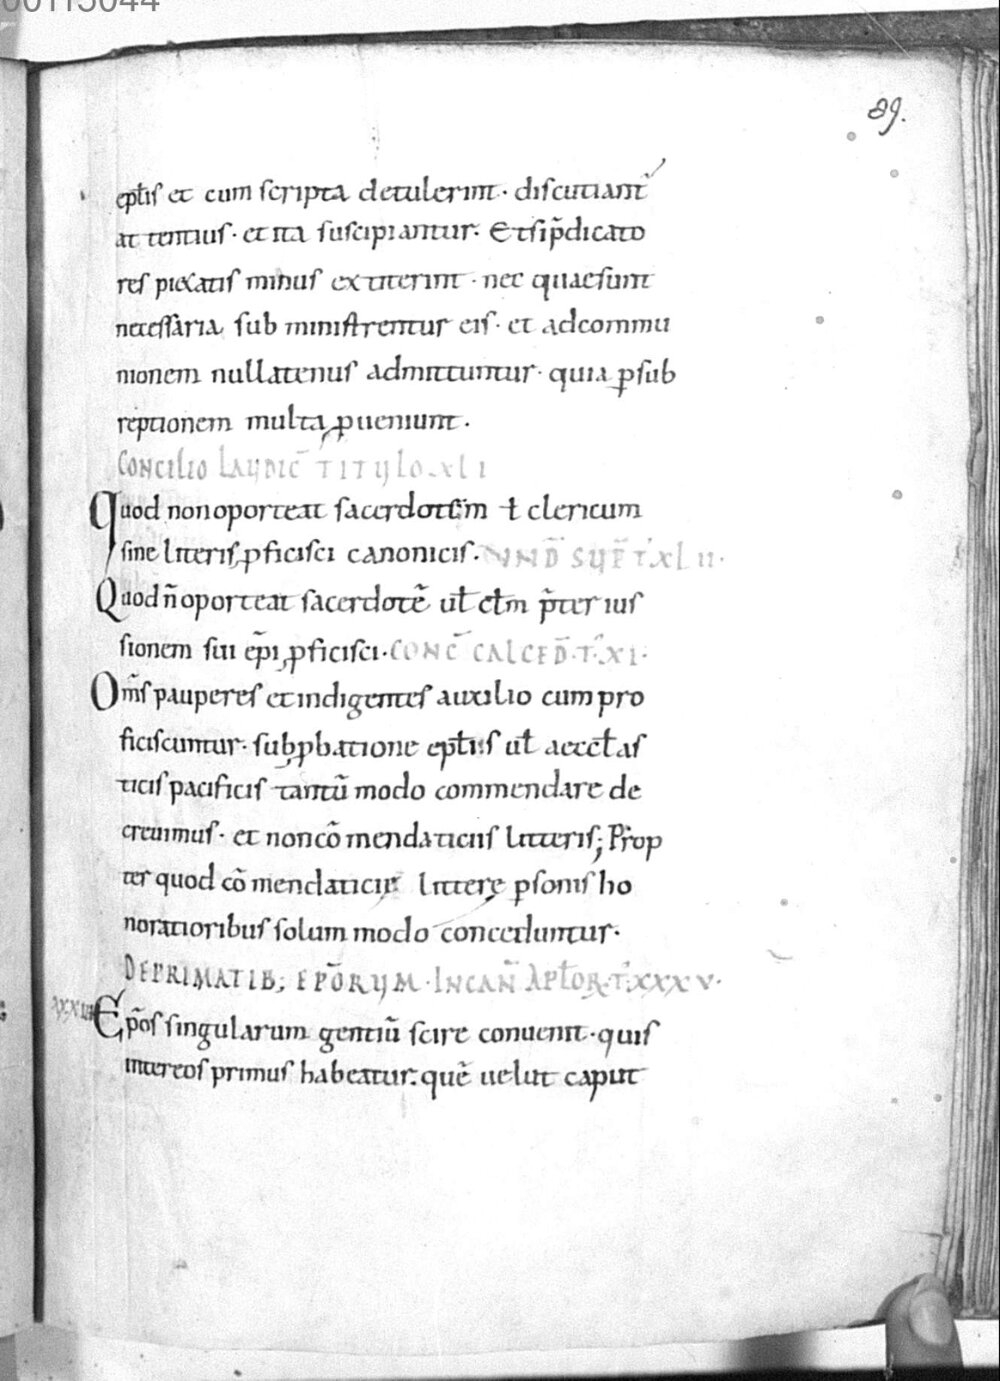 00115044
89.
epłis et cum scripta detulerint · discutiant᷑
at tentius · et ita suscipiantur · Et si p̄dicato
res pietatis minus extiterint · nec quae sunt
necessaria sub ministrentur eis · et ad commu
nionem nullatenus admittuntur · quia ꝑ sub
reptionem multa ꝓueniunt .
CONCILIO LAUDIC̄ TITULO . XLI
Quod non oporteat sacerdotem ł clericum
sine literis ꝓficisci canonicis .
Quod n̄ oporteat sacerdotē uł cłm p̄ter ius
sionem sui ep̄i ꝓficisci · CONC̄ CALCED̄ · T̄ · XI ·
Om̄s pauperes et indigentes auxilio cum pro
ficiscuntur · sub ꝓbatione epłiis uł aecctłas
ticis pacificis tantū modo commendare de
creuimus · et non cō mendaticiis litteris ; Prop
ter quod cō mendaticię litterę ꝑsonis ho
noratioribus solum modo conceduntur ·
DE PRIMATIB; EP̄ORUM · IN CAN̄ APŁOR · T̄ · XXXV ·
Ep̄os singularum gentiū scire conuenit · quis
inter eos primus habeatur · quē uelut caput